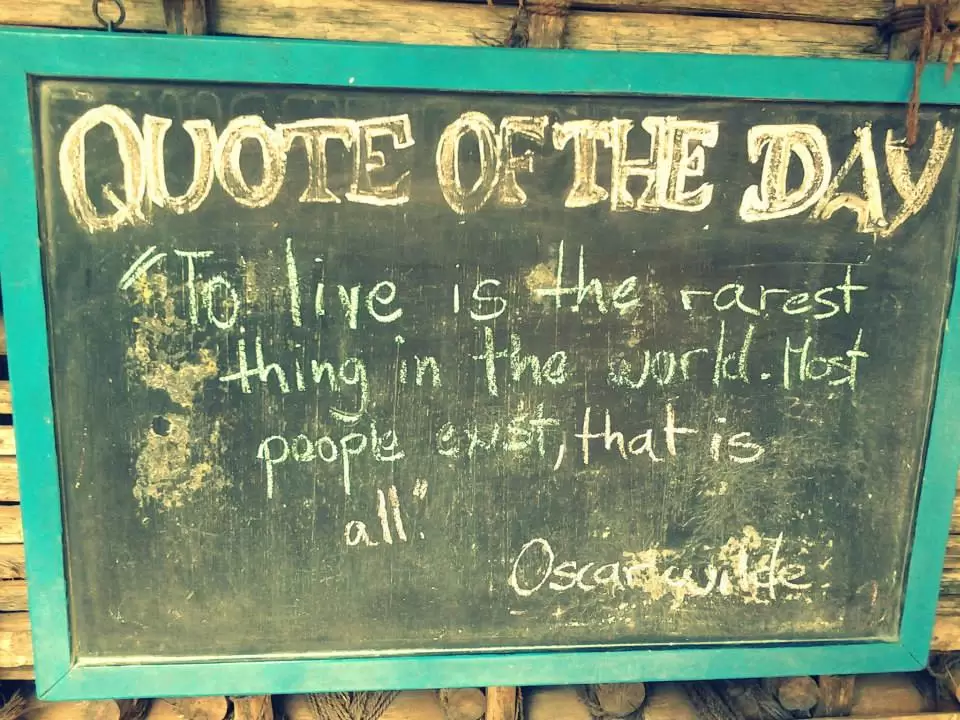 QUOTE OF THE DAY
"To live is the rarest
thing in the world. Most
people exist, that is
all."
Oscar wilde